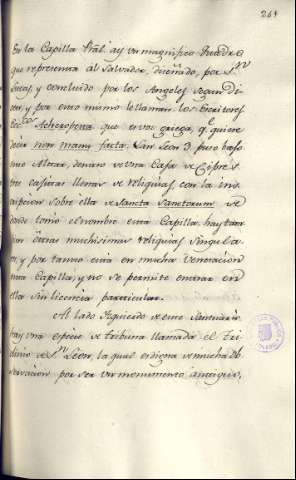 261
En la Capilla Rl. ay un magnifico Quadro
que representa al Salvador, diseñado, por Sn.
Lucas, y concluido por los Angeles segun di
cen, y por esto mismo le llaman los Escritores
Eccos. Acheropena que es voz griega, qe. quiere
decir non manu facta. San Leon 3. puso bajo
su Altar, dentro de una Caja de Cipres
tres cajitas llenas de reliquias con la ins
cripcion sobre ella de Sancta Sanctorum de
donde tomó el nombre esta Capilla, hay tam
bien otras muchisimas reliquias singula
res, y por tanto está en mucha veneracion
esta Capilla, y no se permite entrar en
ella sin licencia particular.
Al lado Izquierdo de este Santuario
hay una especie de tribuna llamada el Tri
clinio de Sn. Leon, la qual es digna de mucha ob
servacion por ser un monumento antiguo,